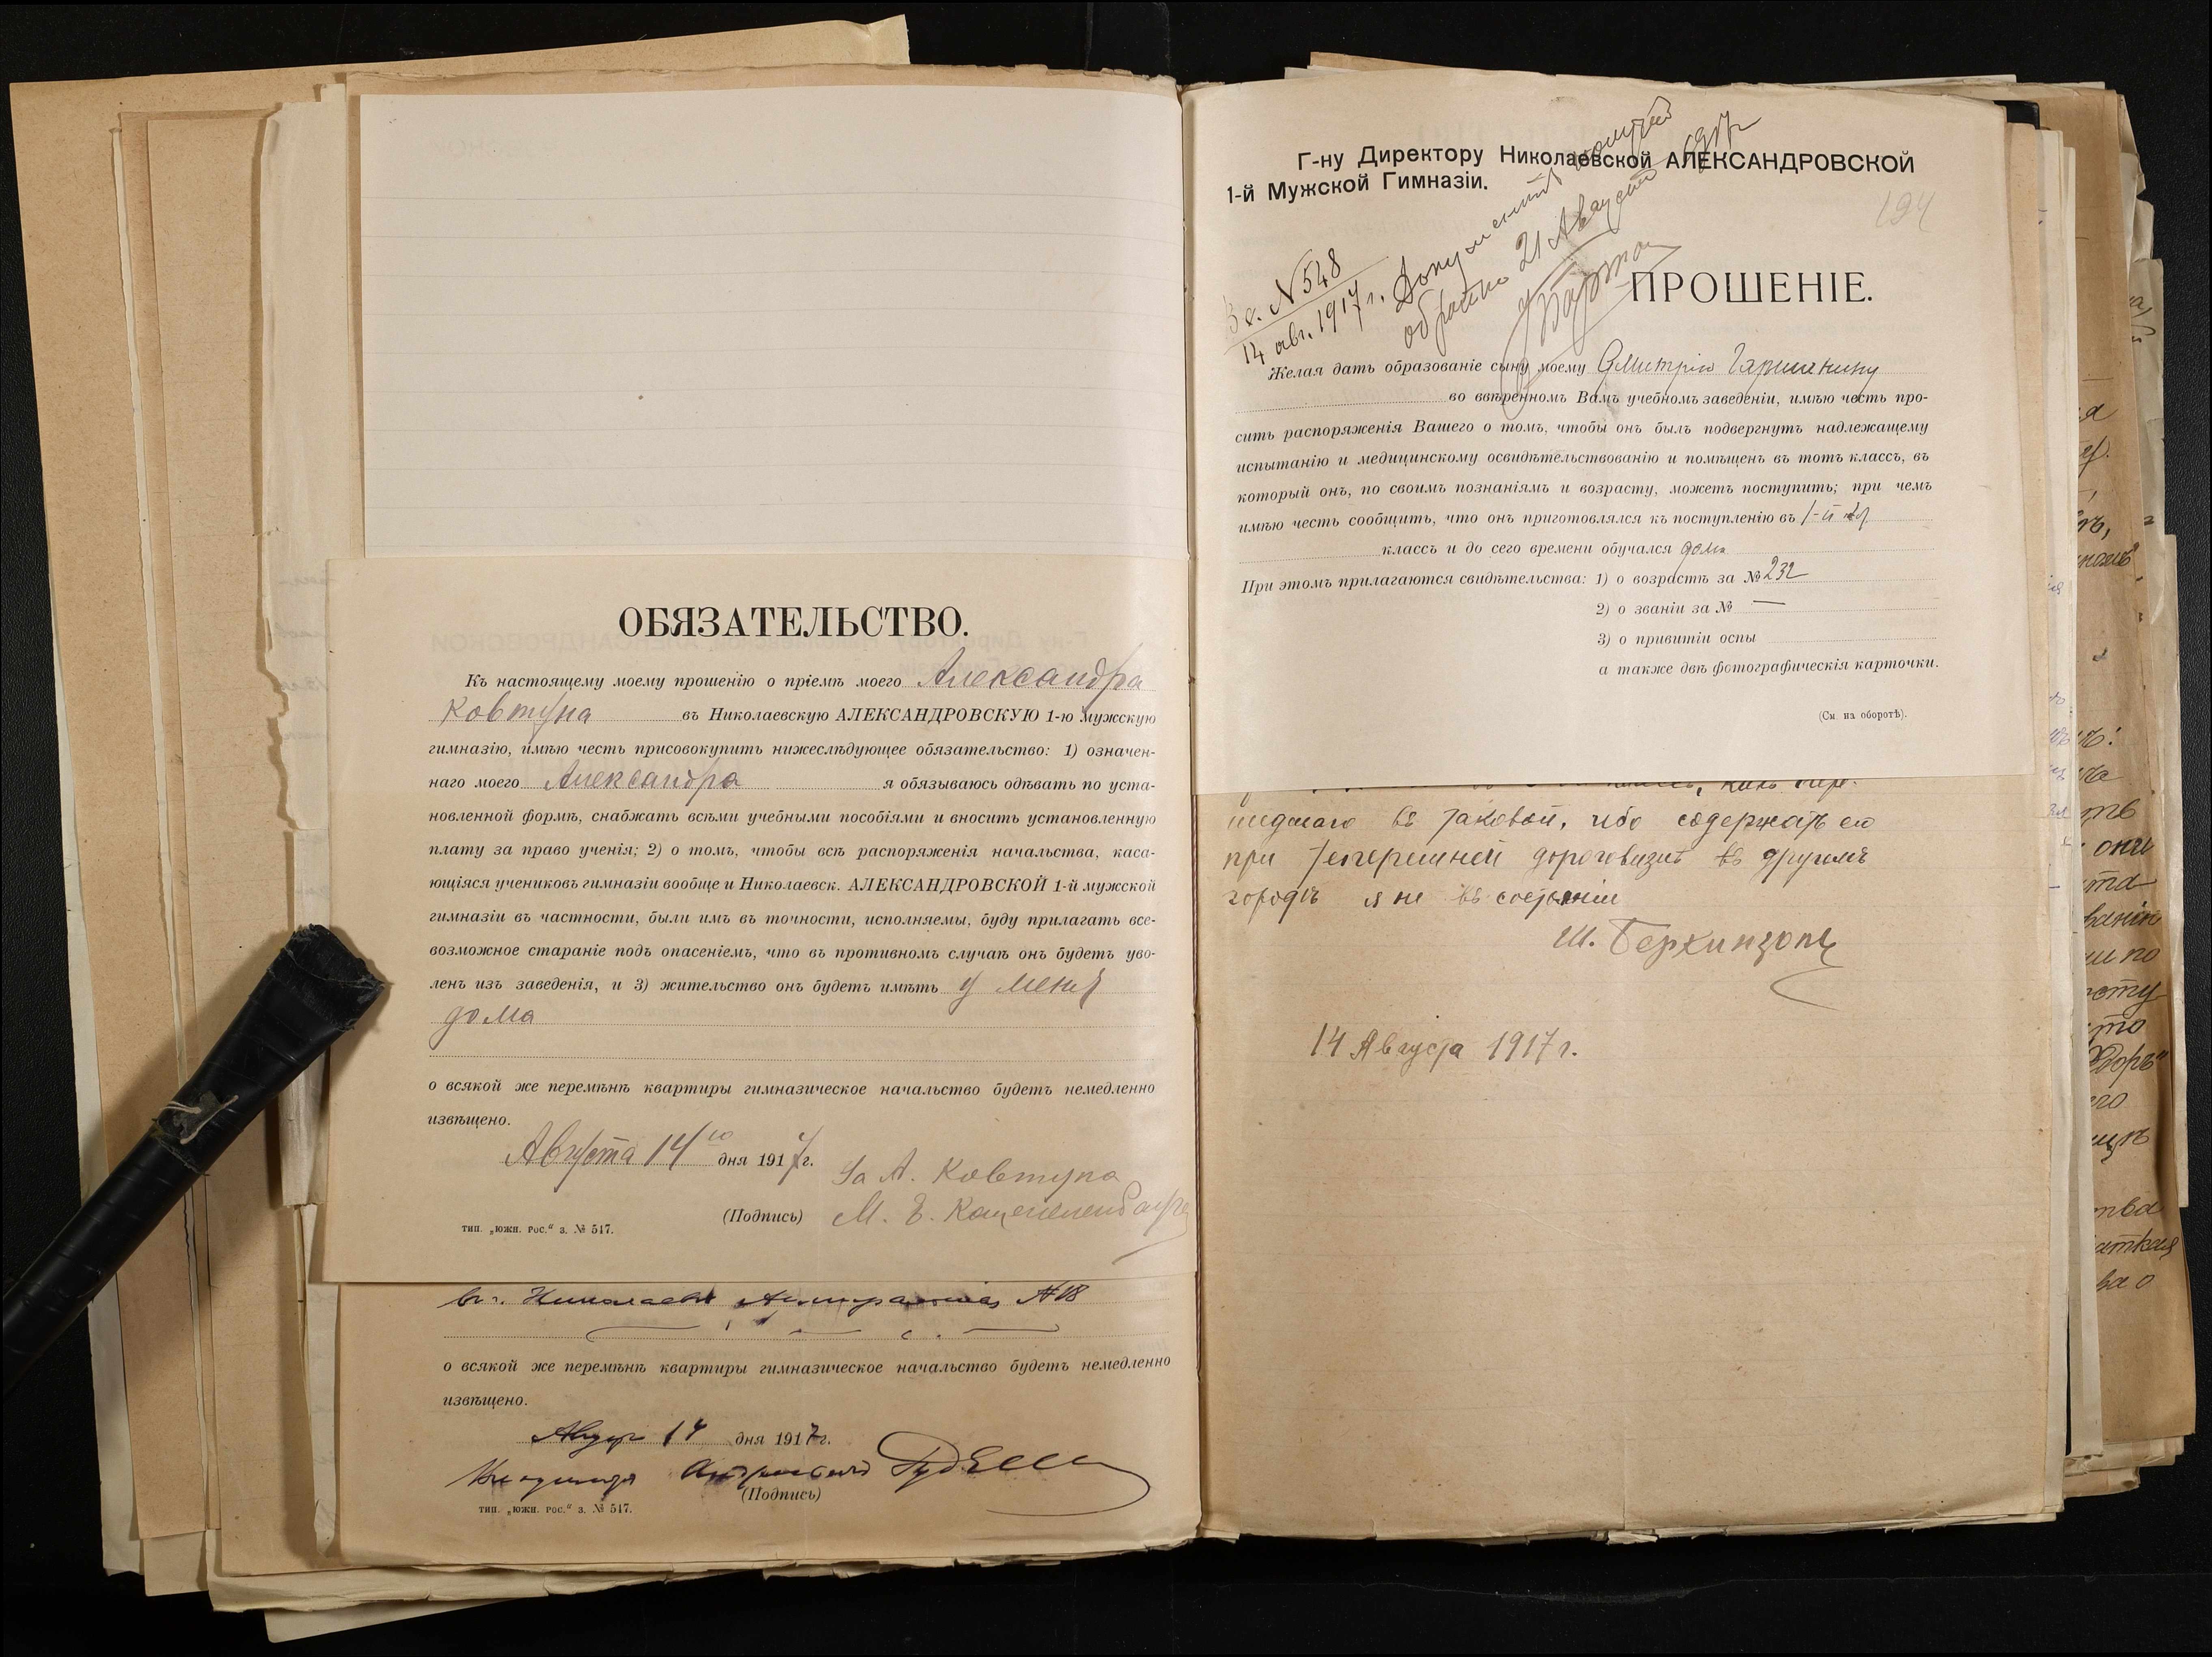 ОБЯЗАТЕЛЬСТВО.
Къ настоящему моему прошенію о пріемѣ моего Александра
Ковтуна въ Николаевскую АЛЕКСАНДРОВСКУЮ 1-ю мужскую
гимназію, имѣю честь присовокупить нижеслѣдующее обязательство: 1) означен-
наго моего Александра я обязываюсь одѣвать по уста-
новленной формѣ, снабжать всѣми учебными пособіями и вносить установленную
плату за право ученія; 2) о томъ, чтобы всѣ распоряженія начальства, каса-
ющіяся учениковъ гимназіи вообще и Николаевск. АЛЕКСАНДРОВСКОЙ 1-й мужской
гимназіи въ частности, были имъ въ точности, исполняемы, буду прилагать все-
возможное стараніе подъ опасеніемъ, что въ противномъ случаѣ онъ будетъ уво-
ленъ изъ заведенія, и 3) жительство онъ будетъ имѣть у меня
дома
о всякой же перемѣнѣ квартиры гимназическое начальство будетъ немедленно
извѣщено.
Августа 14го дня 1917г.
За А. Ковтуна
(Подпись) М. Е.
тип. „южн. рос.“ з. № 517.
в г. Николаевѣ №18
о всякой же перемѣнѣ квартиры гимназическое начальство будетъ немедленно
извѣщено.
14 дня 1917г.
(Подпись)
тип. „южн. рос.“ з. № 517.
Г-ну Директору Николаевской АЛЕКСАНДРОВСКОЙ
1-й Мужской Гимназіи.
194
Вх. N548
14 авг. 1917 г.
Документы получилъ
обратно 21 Августа 1917г
ПРОШЕНІЕ.
Желая дать образованіе сыну моему Дмитрію Гаршинину
во ввѣренномъ Вамъ учебномъ заведеніи, имѣю честь про-
сить распоряженія Вашего о томъ, чтобы онъ былъ подвергнутъ надлежащему
испытанію и медицинскому освидѣтельствованію и помѣщенъ въ тотъ классъ, въ
который онъ, по своимъ познаніямъ и возрасту, можетъ поступить; при чемъ
имѣю честь сообщить, что онъ приготовлялся къ поступленію въ 1-й
классъ и до сего времени обучался дома
При этомъ прилагаются свидѣтельства: 1) о возрастѣ за № 232
2) о званіи за № —
3) о привитіи оспы
а также двѣ фотографическія карточки.
(См. на оборотѣ).
шедшаго въ таковой, ибо содержать его
при теперешней дороговизнѣ въ другомъ
городѣ я не въ состояніи
Ш. Беркинзонъ
14 Августа 1917 г.